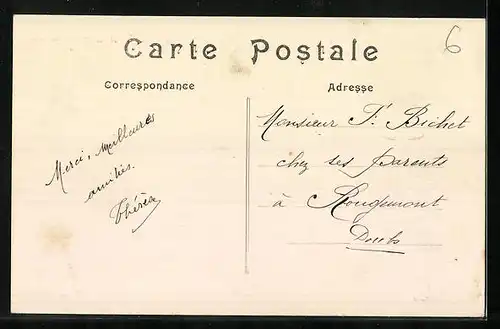 6
Carte Postale
Correspondance
Merci, Meilleures
amitiés.
Thérèse
Adresse
Monsieur F. Bichet
chez ses parents
à Rougemont
Doubs